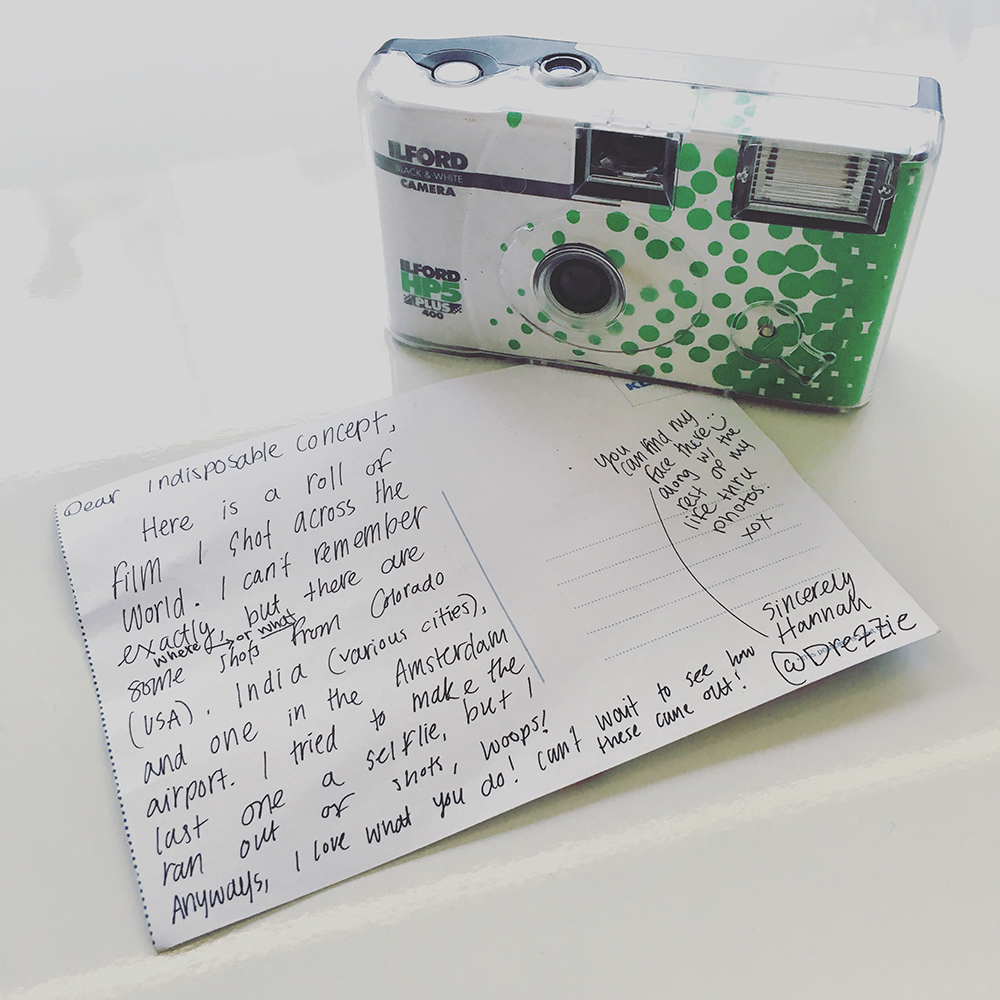 ILFORD
BLACK & WHITE
CAMERA
ILFORD
HP5
PLUS
400
Dear Indisposable concept,
Here is a roll of
film I shot across the
World. I can't remember
exactly, but there are
where or what
some shots from Colorado
(USA), India (various cities),
and one in the Amsterdam
airport. I tried to make the
last one a selflie, but I
ran out of shots, woops!
Anyways, I love what you do! Can't wait to see how
these came out!
you
can find my
face there
along w/ the
rest of my
life thru
photos.
xox
sincerely
Hannah
@Drezzie